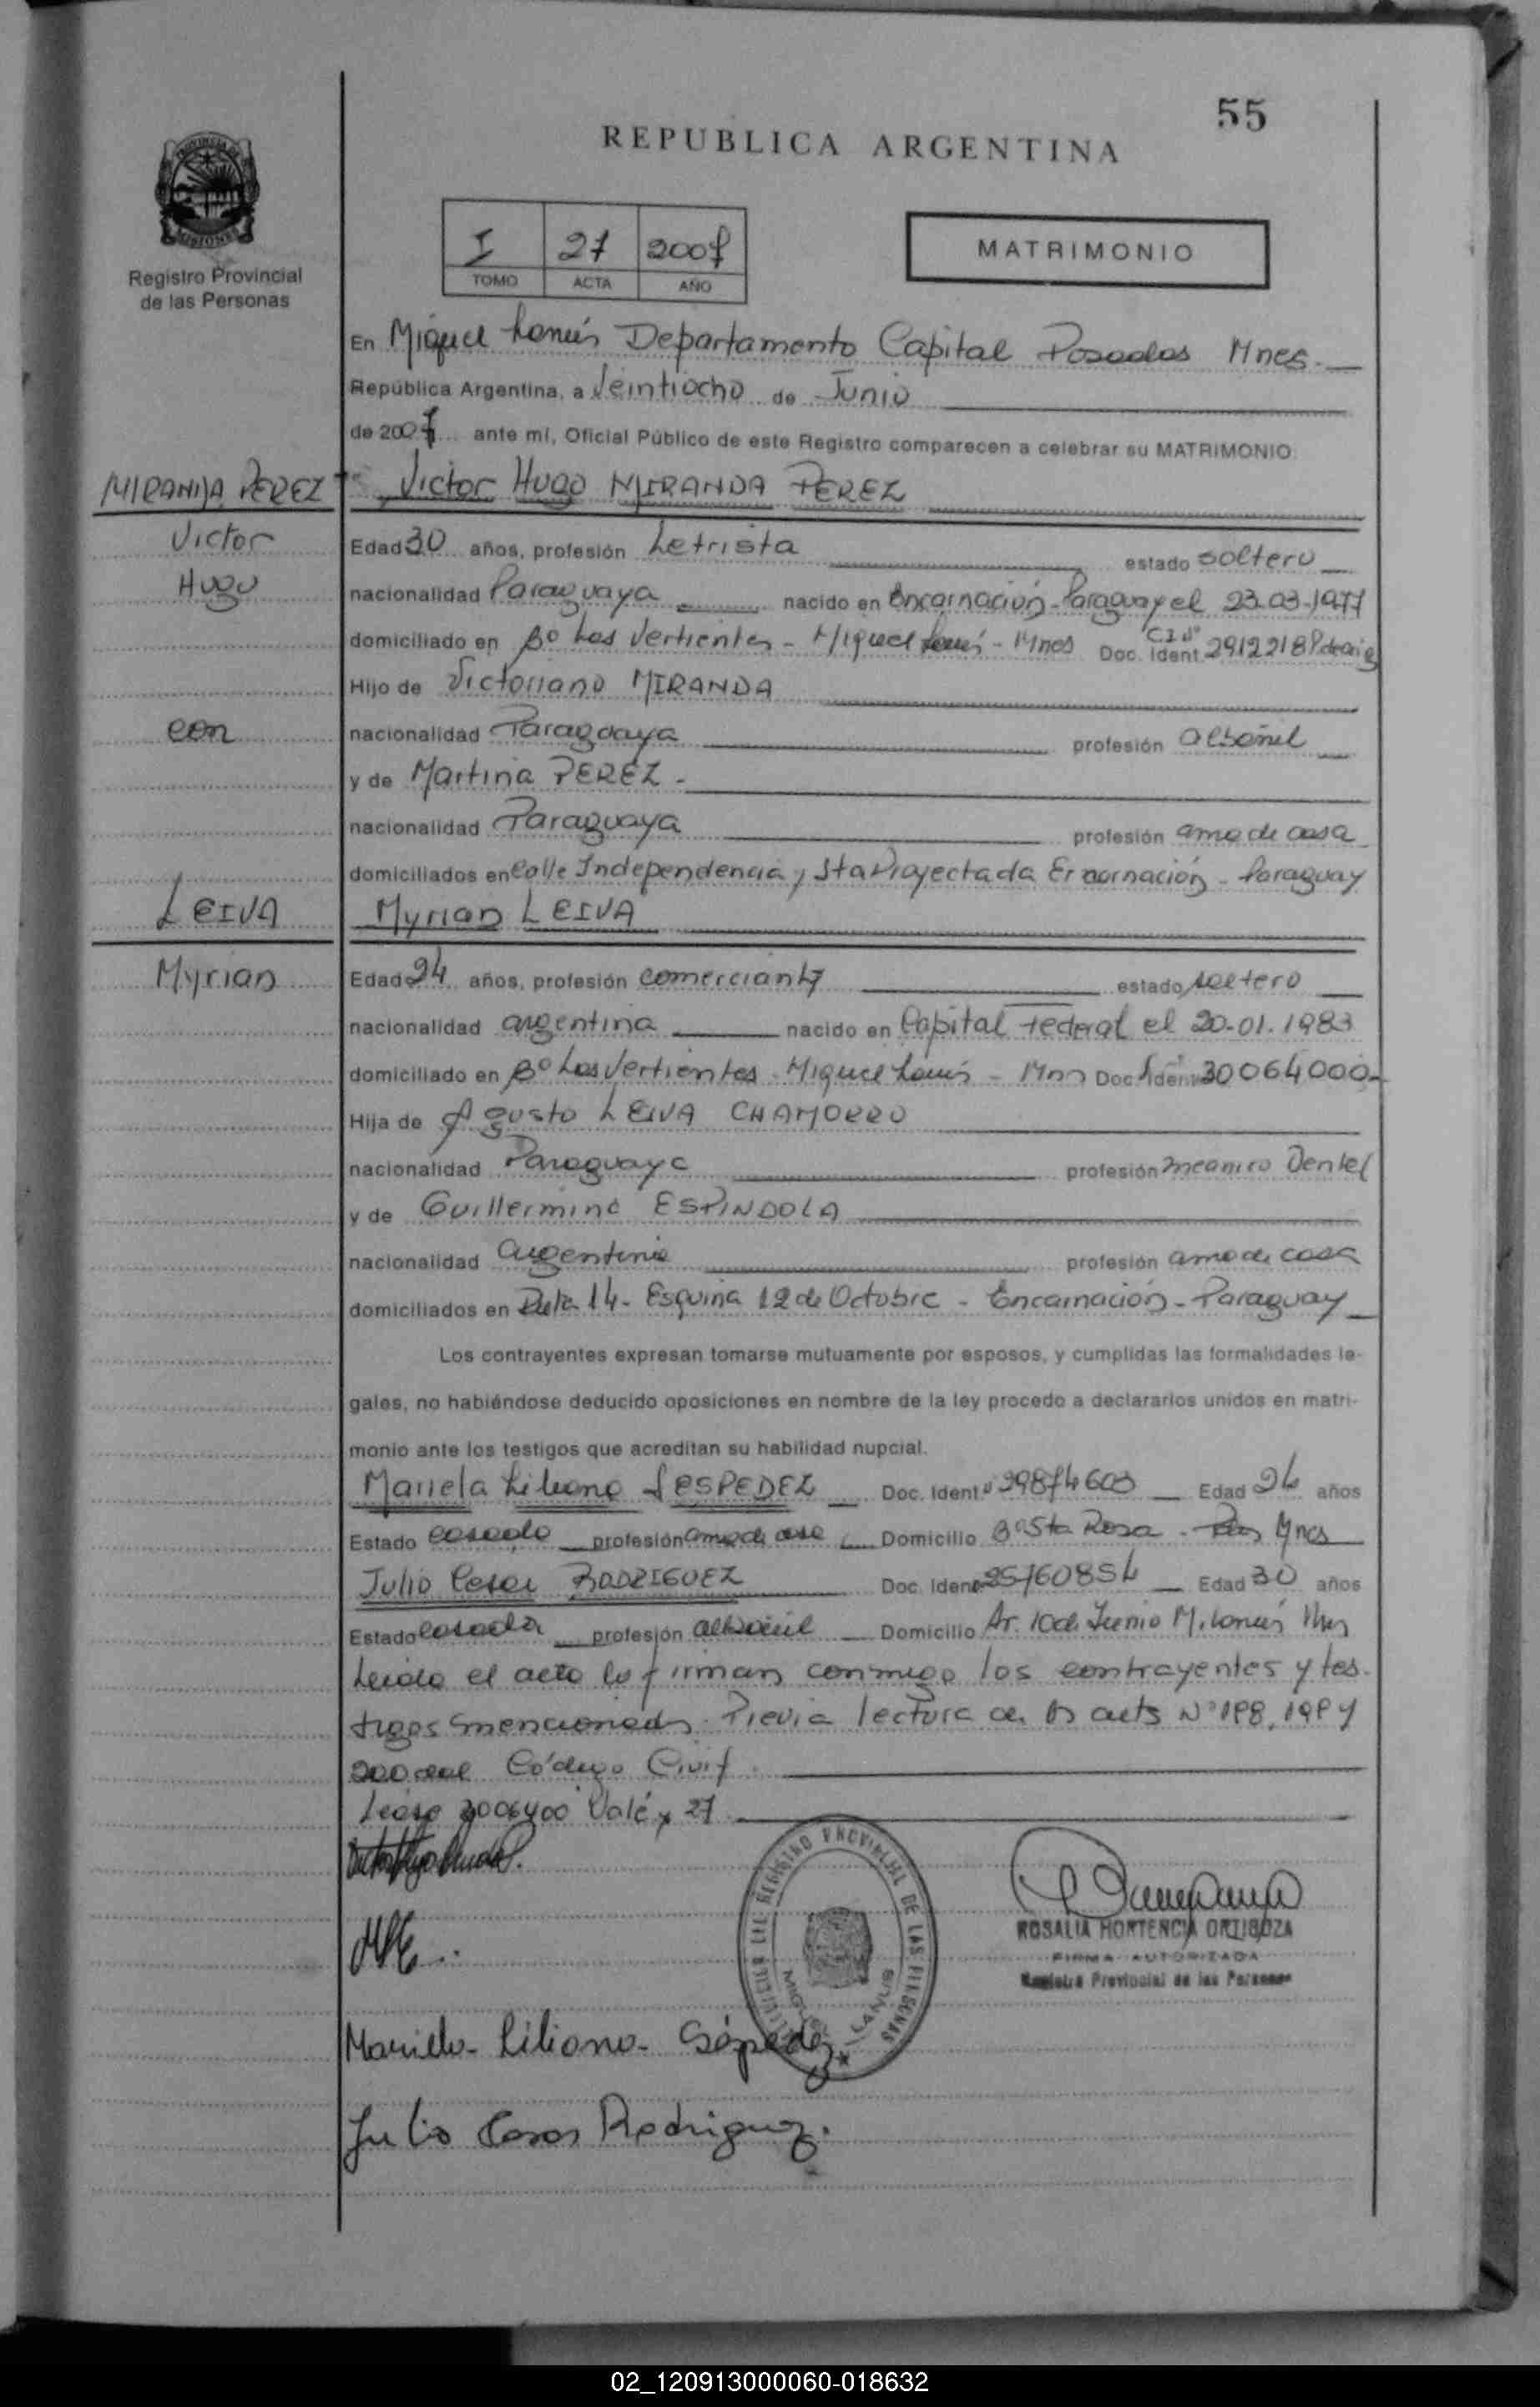 55
REPUBLICA ARGENTINA
PROVINCIA DE MISIONES
Registro Provincial
de las Personas
I 27 2007
TOMO ACTA AÑO
MATRIMONIO
En Miguel Lanús Departamento Capital Posadas Mnes.
República Argentina, a Veintiocho de Junio
de 2007 ante mí, Oficial Público de este Registro comparecen a celebrar su MATRIMONIO
MIRANDA PEREZ Victor Hugo MIRANDA PEREZ
Victor Edad 30 años, profesión Letrista estado soltero
Hugo nacionalidad Paraguaya nacido en Encarnación-Paraguay el 23-03-1977
domiciliado en Bº Las Vertientes - Miguel Lanús - Mnes Doc. Ident. CI Nº
Hijo de Victoriano MIRANDA
con nacionalidad Paraguaya profesión albañil
y de Martina PEREZ -
nacionalidad Paraguaya profesión ama de casa
domiciliados en Calle Independencia y Sta Proyectada Encarnación - Paraguay
LEIVA Myrian LEIVA
Myrian Edad 24 años, profesión comerciante estado soltero
nacionalidad argentina nacido en Capital Federal el 20-01-1983
domiciliado en Bº Las Vertientes - Miguel Lanús - Mnes Doc. Ident. 30064000-
Hija de Agusto LEIVA CHAMORRO
nacionalidad Paraguaya profesión mecanico Dental
y de Guillermina ESPINDOLA
nacionalidad argentina profesión ama de casa
domiciliados en Ruta 14 - Esquina 12 de Octubre - Encarnación - Paraguay
Los contrayentes expresan tomarse mutuamente por esposos, y cumplidas las formalidades le-
gales, no habiéndose deducido oposiciones en nombre de la ley procedo a declararlos unidos en matri-
monio ante los testigos que acreditan su habilidad nupcial.
Mariela Liliana SESPEDEZ Doc. Ident. 29874603 Edad 24 años
Estado casada profesión ama de casa Domicilio Bº Sta Rosa - Mnes
Julio Cesar RODRIGUEZ Doc. Ident. 25760854 Edad 30 años
Estado casado profesión albañil Domicilio Av. 10 de Junio M. Lanús Mnes
Leida el acta la firman conmigo los contrayentes y tes-
tigos mencionados. Previa lectura de los arts Nº 198, 199 y
200 del Código Civil
Lease Vale 27
Mariela Liliana Séspedez
Julio Cesar Rodriguez.
REGISTRO PROVINCIAL DE LAS PERSONAS
MIGUEL LANUS
ROSALIA HORTENCIA ORTIGOZA
FIRMA AUTORIZADA
Registro Provincial de las Personas
02_120913000060-018632